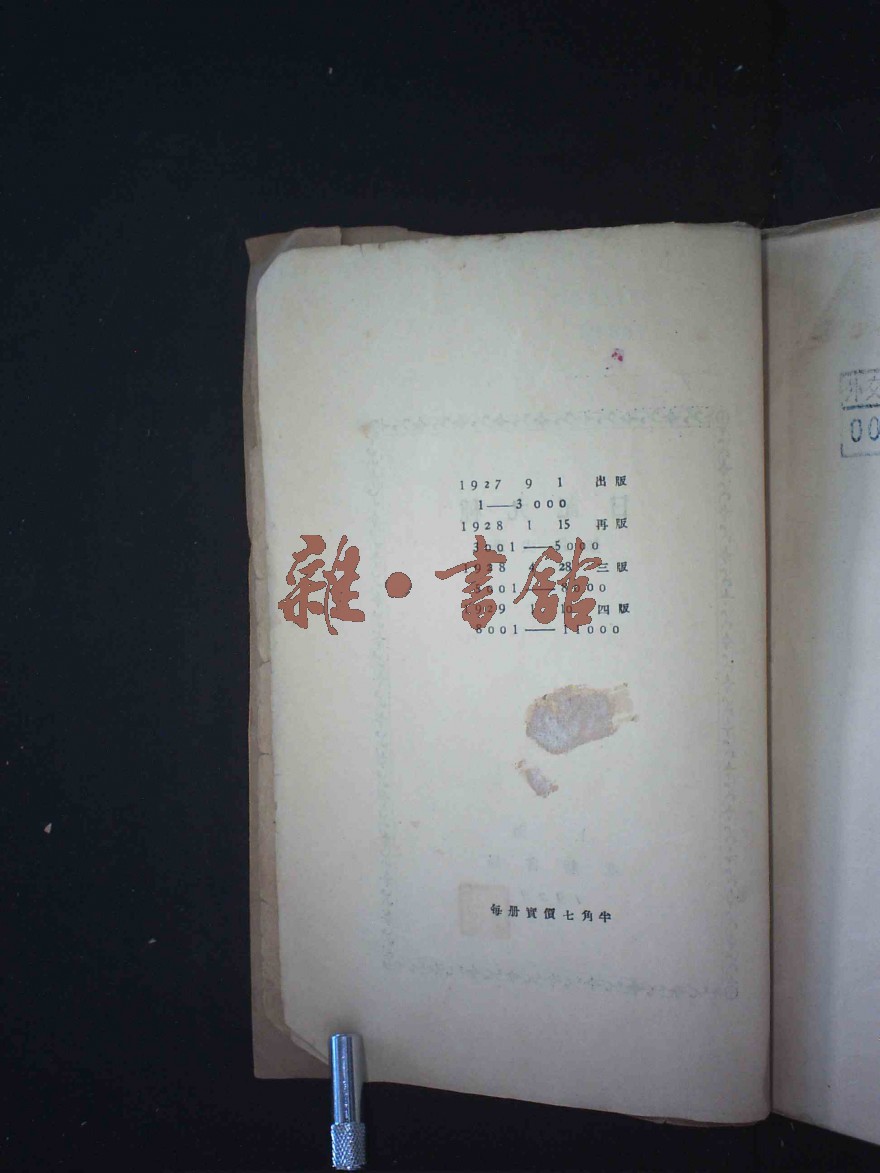 1927 9 1 出版
1——3000
1928 1 15 再版
3001——5000
1928 4 28 三版
5001——8000
1929 1 10 四版
8001——11000
雜·書舘
每册實價七角半
外文
00